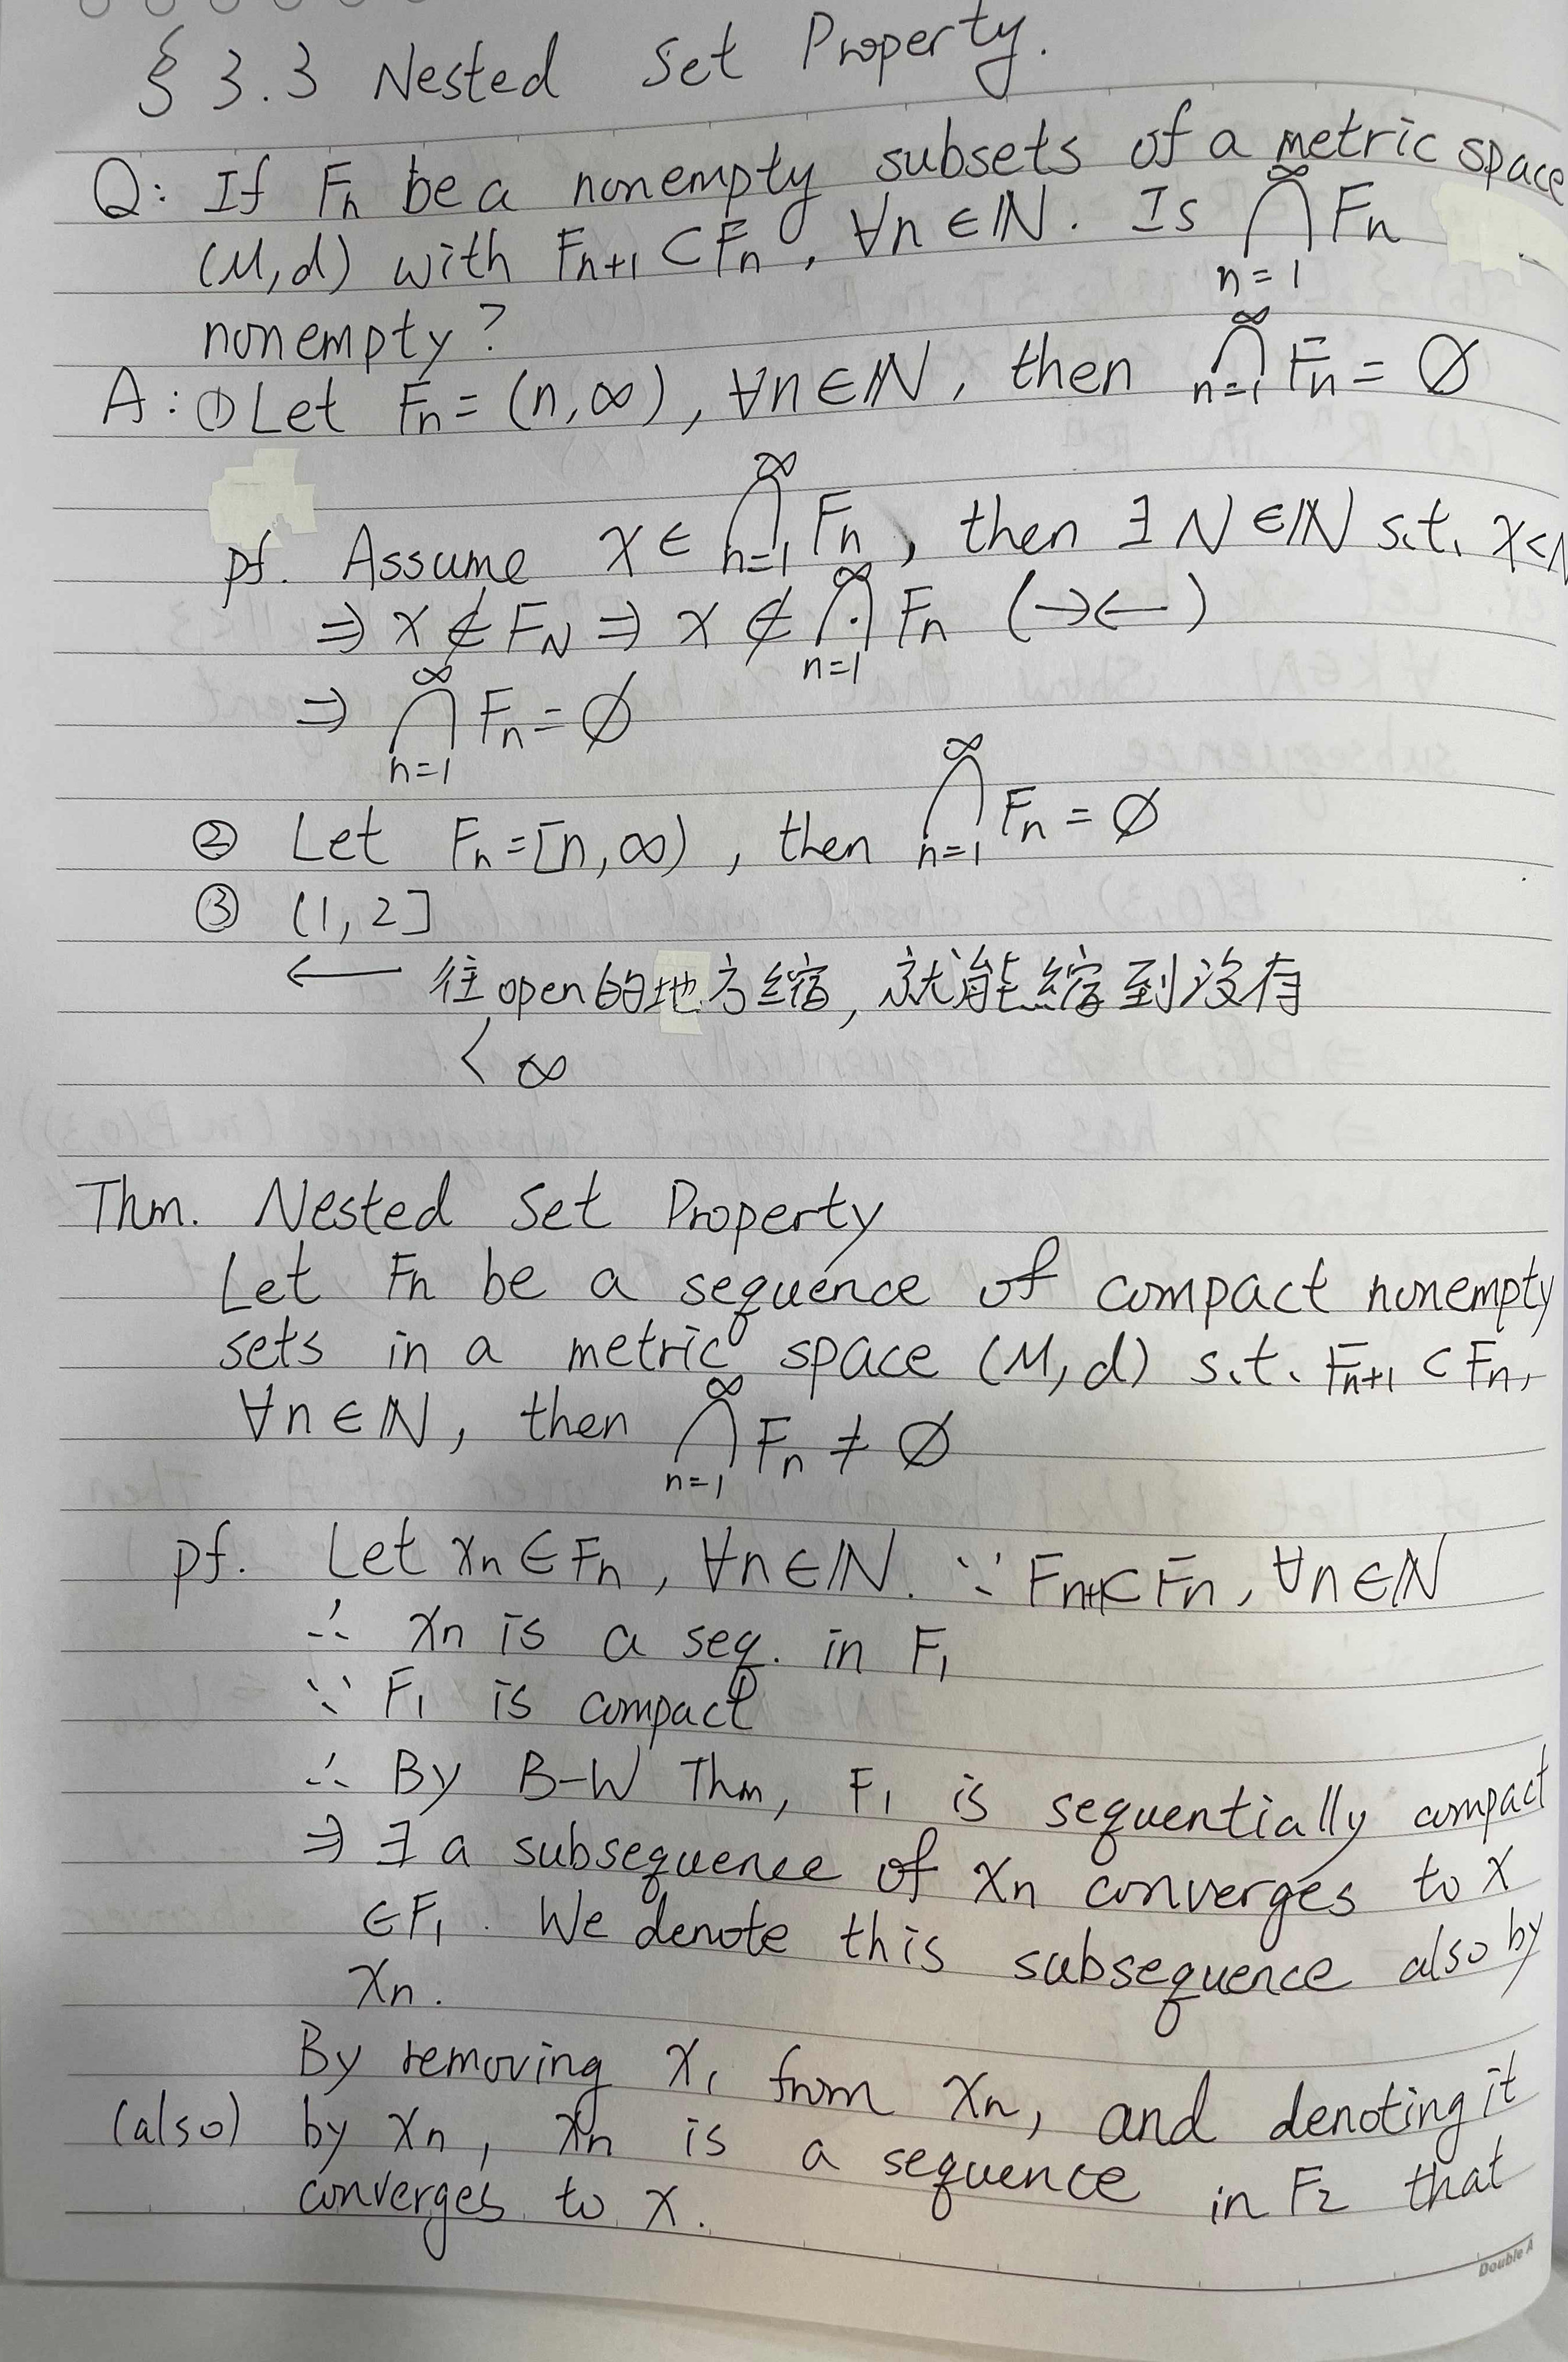 § 3.3 Nested Set Property.
Q: If Fn be a nonempty subsets of a metric space
(M,d) with Fn+1 ⊂ Fn, ∀n∈ℕ. Is ∞⋂n=1 Fn
nonempty?
A: ① Let Fn = (n,∞), ∀n∈ℕ, then ∞⋂n=1 Fn = ∅
pf. Assume x ∈ ∞⋂n=1 Fn, then ∃ N∈ℕ s.t. x<N
⇒ x ∉ FN ⇒ x ∉ ∞⋂n=1 Fn (→←)
⇒ ∞⋂n=1 Fn = ∅
② Let Fn = [n,∞), then ∞⋂n=1 Fn = ∅
③ (1,2]
← 往open的地方缩, 就能縮到没有
〈 ∞
Thm. Nested Set Property
Let Fn be a sequence of compact nonempty
sets in a metric space (M,d) s.t. Fn+1 ⊂ Fn,
∀n∈ℕ, then ∞⋂n=1 Fn ≠ ∅
pf. Let xn ∈ Fn, ∀n∈ℕ. ∵ Fn+1⊂Fn, ∀n∈ℕ
∴ xn is a seq. in F1
∵ F1 is compact
∴ By B-W Thm, F1 is sequentially compact
⇒ ∃ a subsequence of xn converges to x
∈F1. We denote this subsequence also by
xn.
By removing x1 from xn, and denoting it
(also) by xn, xn is a sequence in F2 that
converges to x.
Double A